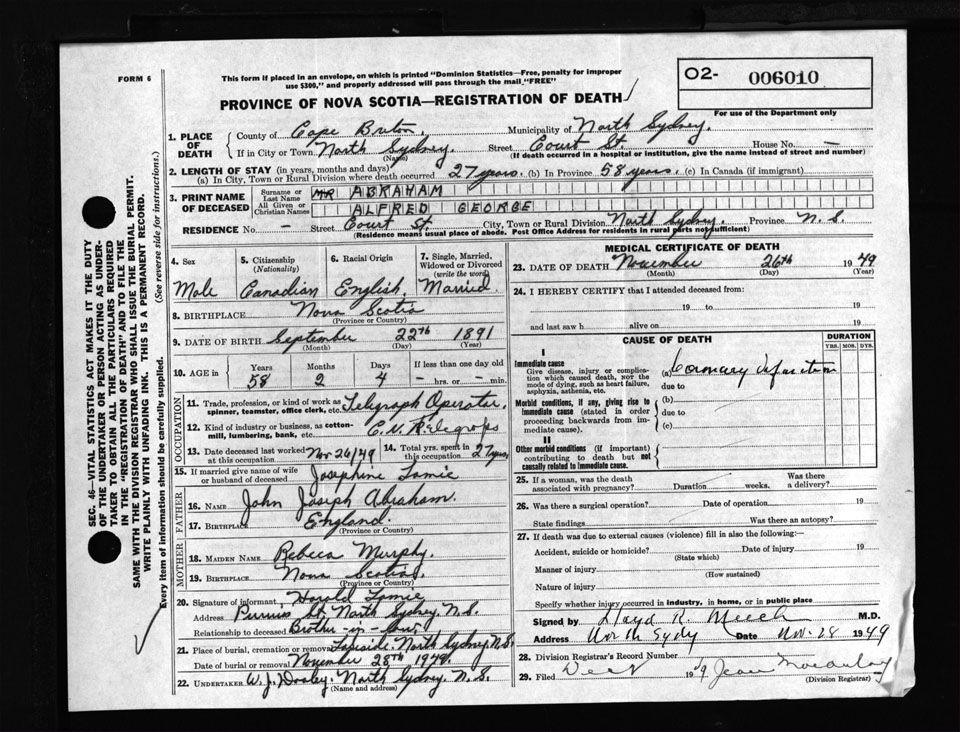 FORM 6
This form if placed in an envelope, on which is printed "Dominion Statistics—Free, penalty for improper
use $300," and properly addressed will pass through the mail "FREE"
O2- 006010
For use of the Department only
PROVINCE OF NOVA SCOTIA—REGISTRATION OF DEATH
1. PLACE OF DEATH County of Cape Breton. Municipality of North Sydney.
If in City or Town North Sydney. (Name) Street Court St. House No. —
(If death occurred in a hospital or institution, give the name instead of street and number)
2. LENGTH OF STAY (in years, months and days)
(a) In City, Town or Rural Division where death occurred 27 years. (b) In Province 58 years. (c) In Canada (if immigrant)
3. PRINT NAME OF DECEASED Surname or Last Name MR ABRAHAM
All Given or Christian Names ALFRED GEORGE
RESIDENCE No. — Street Court St. City, Town or Rural Division North Sydney. Province N.S.
(Residence means usual place of abode. Post Office Address for residents in rural parts not sufficient)
4. Sex 5. Citizenship (Nationality) 6. Racial Origin 7. Single, Married, Widowed or Divorced (write the word)
Male Canadian English. Married.
8. BIRTHPLACE Nova Scotia
(Province or Country)
9. DATE OF BIRTH September 22th 1891
(Month) (Day) (Year)
10. AGE in Years Months Days If less than one day old
58 2 4 — hrs. or — min.
OCCUPATION
11. Trade, profession, or kind of work as spinner, teamster, office clerk, etc. Telegraph Operator.
12. Kind of industry or business, as cotton-mill, lumbering, bank, etc. C.N.
13. Date deceased last worked at this occupation Nov 26/49 14. Total yrs. spent in this occupation 27 years.
15. If married give name of wife or husband of deceased Josephine Lamie
FATHER
16. NAME John Joseph Abraham.
17. BIRTHPLACE England.
(Province or Country)
MOTHER
18. MAIDEN NAME Rebecca Murphy.
19. BIRTHPLACE Nova Scotia.
(Province or Country)
20. Signature of informant Harold Lamie
Address St, North Sydney, N.S.
Relationship to deceased Brother-in-law.
21. Place of burial, cremation or removal Lakeside. North Sydney N.S.
Date of burial or removal November 28th 1949.
22. UNDERTAKER W.J. Dooley. North Sydney N.S.
(Name and address)
MEDICAL CERTIFICATE OF DEATH
23. DATE OF DEATH November 26th 1949
(Month) (Day)
24. I HEREBY CERTIFY that I attended deceased from:
19 to 19
and last saw h alive on 19
CAUSE OF DEATH DURATION
YRS. MOS. DYS.
I
Immediate cause
Give disease, injury or complication which caused death, not the mode of dying, such as heart failure, asphyxia, asthenia, etc.
(a) Coronary Infarction
due to
Morbid conditions, if any, giving rise to immediate cause (stated in order proceeding backwards from immediate cause).
(b)
due to
(c)
II
Other morbid conditions (if important) contributing to death but not causally related to immediate cause.
25. If a woman, was the death associated with pregnancy? Duration weeks. Was there a delivery?
26. Was there a surgical operation? Date of operation 19
State findings Was there an autopsy?
27. If death was due to external causes (violence) fill in also the following:—
Accident, suicide or homicide? Date of injury 19
(State which)
Manner of injury
(How sustained)
Nature of injury
Specify whether injury occurred in industry, in home, or in public place
Signed by Lloyd R. Meech M.D.
Address North Sydy Date Nov. 28 1949
28. Division Registrar's Record Number
29. Filed 19 Jean
(Division Registrar)
SEC. 46—VITAL STATISTICS ACT MAKES IT THE DUTY
OF THE UNDERTAKER OR PERSON ACTING AS UNDER-
TAKER TO OBTAIN ALL THE PARTICULARS REQUIRED
IN THE "REGISTRATION OF DEATH" AND TO FILE THE
SAME WITH THE DIVISION REGISTRAR WHO SHALL ISSUE THE BURIAL PERMIT.
WRITE PLAINLY WITH UNFADING INK. THIS IS A PERMANENT RECORD.
Every item of information should be carefully supplied. (See reverse side for instructions.)